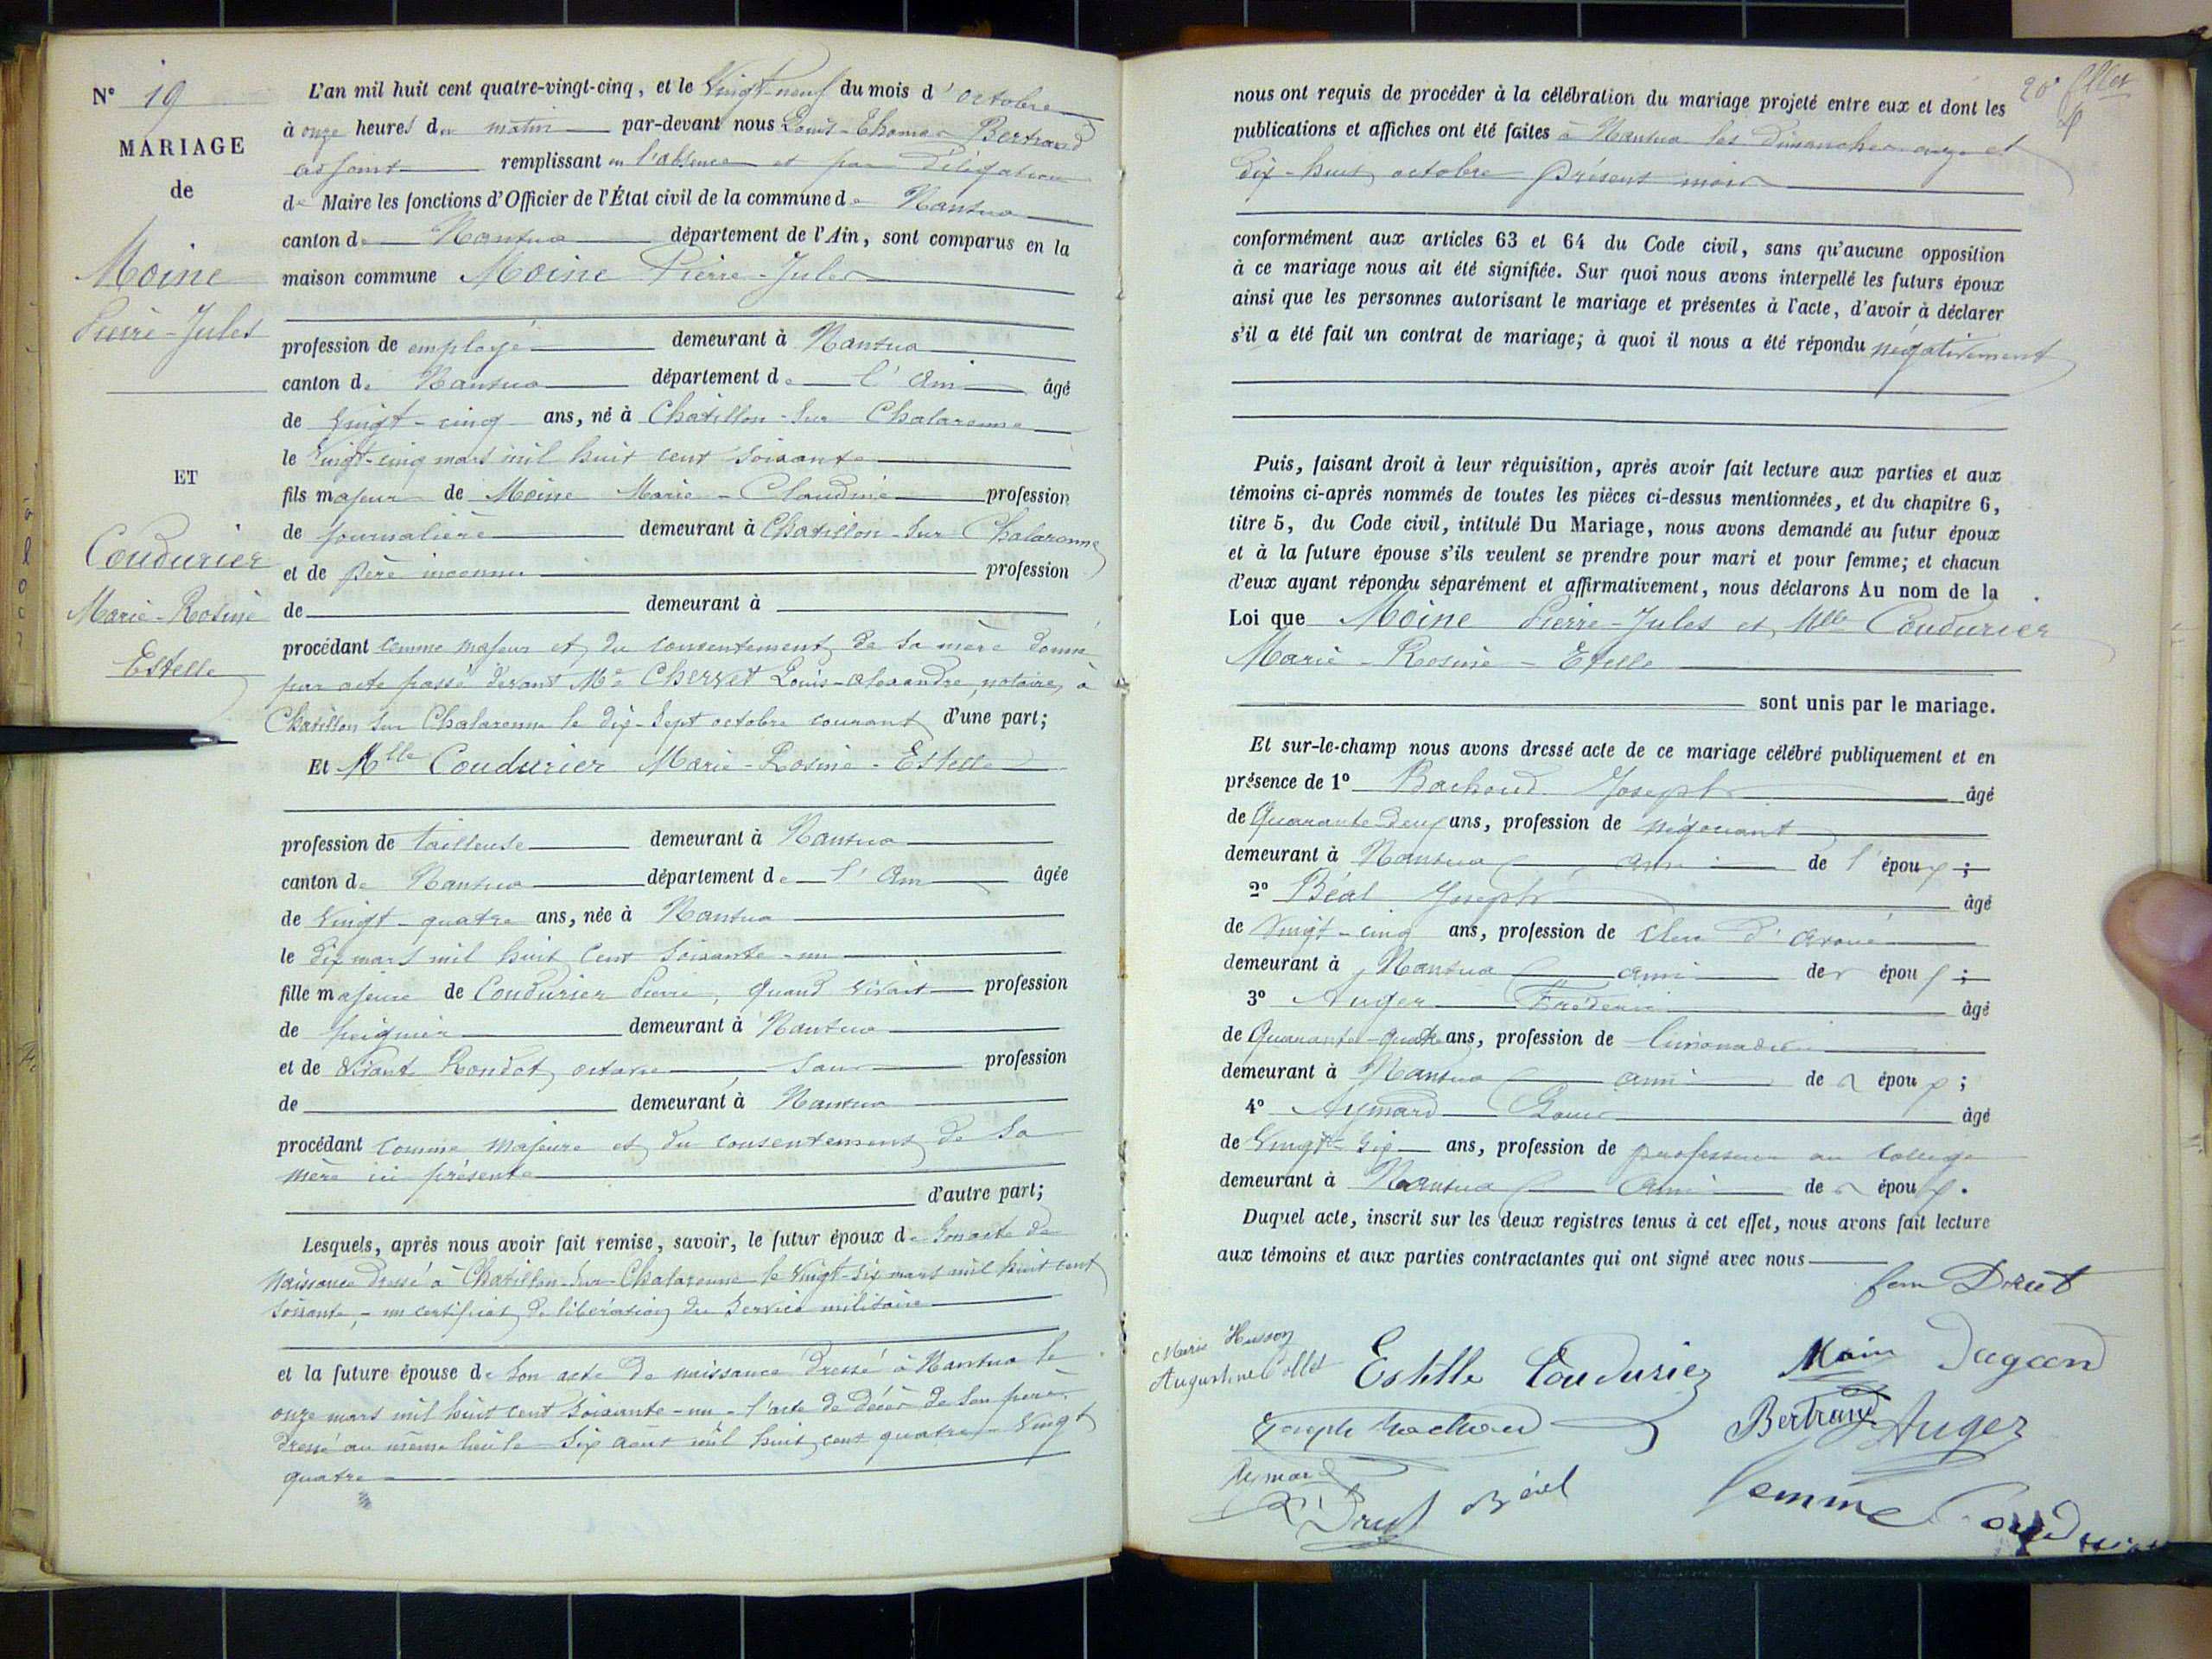 N° 19
MARIAGE
de
Moine
Pierre-Jules
ET
Coudurier
Marie-Rosine
Estelle
L'an mil huit cent quatre-vingt-cinq, et le Vingt-neuf du mois d'octobre
à onze heures du matin par-devant nous Louis-Thomas Bertrand
adjoint remplissant en l'absence et par délégation
de Maire les fonctions d'Officier de l'État civil de la commune de Nantua
canton de Nantua département de l'Ain, sont comparus en la
maison commune Moine Pierre-Jules
profession de employé demeurant à Nantua
canton de Nantua département de l'Ain âgé
de vingt-cinq ans, né à Chatillon-sur Chalaronne
le vingt-cinq mars mil huit cent soixante
fils majeur de Moine Marie-Claudine profession
de journalière demeurant à Chatillon-sur-Chalaronne
et de père inconnu profession
de demeurant à
procédant comme majeur et du consentement de sa mère donné
par acte passé devant Me Chervet Louis-Alexandre, notaire, à
Chatillon sur Chalaronne le dix-sept octobre courant d'une part;
Et Mlle Coudurier Marie-Rosine-Estelle
profession de tailleuse demeurant à Nantua
canton de Nantua département de l'Ain âgée
de vingt-quatre ans, née à Nantua
le dix mars mil huit cent soixante-un
fille majeure de Coudurier Pierre, quand vivait profession
de peignier demeurant à Nantua
et de vivante Rondot, octavie, sans profession
de demeurant à Nantua
procédant comme majeure et du consentement de sa
mère ici présente
d'autre part;
Lesquels, après nous avoir fait remise, savoir, le futur époux de son acte de
naissance dressé à Chatillon-sur-Chalaronne le vingt-six mars mil huit cent
soixante, - un certificat de libération du service militaire
et la future épouse de son acte de naissance dressé à Nantua le
onze mars mil huit cent soixante-un - l'acte de décès de son père
dressé au même lieu le six août mil huit cent quatre-vingt
quatre
20e fllet
nous ont requis de procéder à la célébration du mariage projeté entre eux et dont les
publications et affiches ont été faites à Nantua les dimanches onze et
dix-huit octobre présent mois
conformément aux articles 63 et 64 du Code civil, sans qu'aucune opposition
à ce mariage nous ait été signifiée. Sur quoi nous avons interpellé les futurs époux
ainsi que les personnes autorisant le mariage et présentes à l'acte, d'avoir à déclarer
s'il a été fait un contrat de mariage; à quoi il nous a été répondu négativement
Puis, faisant droit à leur réquisition, après avoir fait lecture aux parties et aux
témoins ci-après nommés de toutes les pièces ci-dessus mentionnées, et du chapitre 6,
titre 5, du Code civil, intitulé Du Mariage, nous avons demandé au futur époux
et à la future épouse s'ils veulent se prendre pour mari et pour femme; et chacun
d'eux ayant répondu séparément et affirmativement, nous déclarons Au nom de la
Loi que Moine Pierre-Jules et Mlle Coudurier
Marie-Rosine-Estelle
sont unis par le mariage.
Et sur-le-champ nous avons dressé acte de ce mariage célébré publiquement et en
présence de 1° Bachoud Joseph âgé
de Quarante-deux ans, profession de négociant
demeurant à Nantua ami de l'époux;
2° Béal Joseph âgé
de vingt-cinq ans, profession de clerc d'avoué
demeurant à Nantua ami des époux;
3° Auger Frédéric âgé
de Quarante-quatre ans, profession de limonadier
demeurant à Nantua ami des époux;
4° Aymard Louis âgé
de Vingt-six ans, profession de professeur au collège
demeurant à Nantua ami des époux.
Duquel acte, inscrit sur les deux registres tenus à cet effet, nous avons fait lecture
aux témoins et aux parties contractantes qui ont signé avec nous
fem Drut
Marie Husson
Augustine Collet
Estelle Coudurier
Moine
Dagand
Joseph Bachoud
Bertrand
Auger
Aymard
Drut
Béal
femme Coudurier